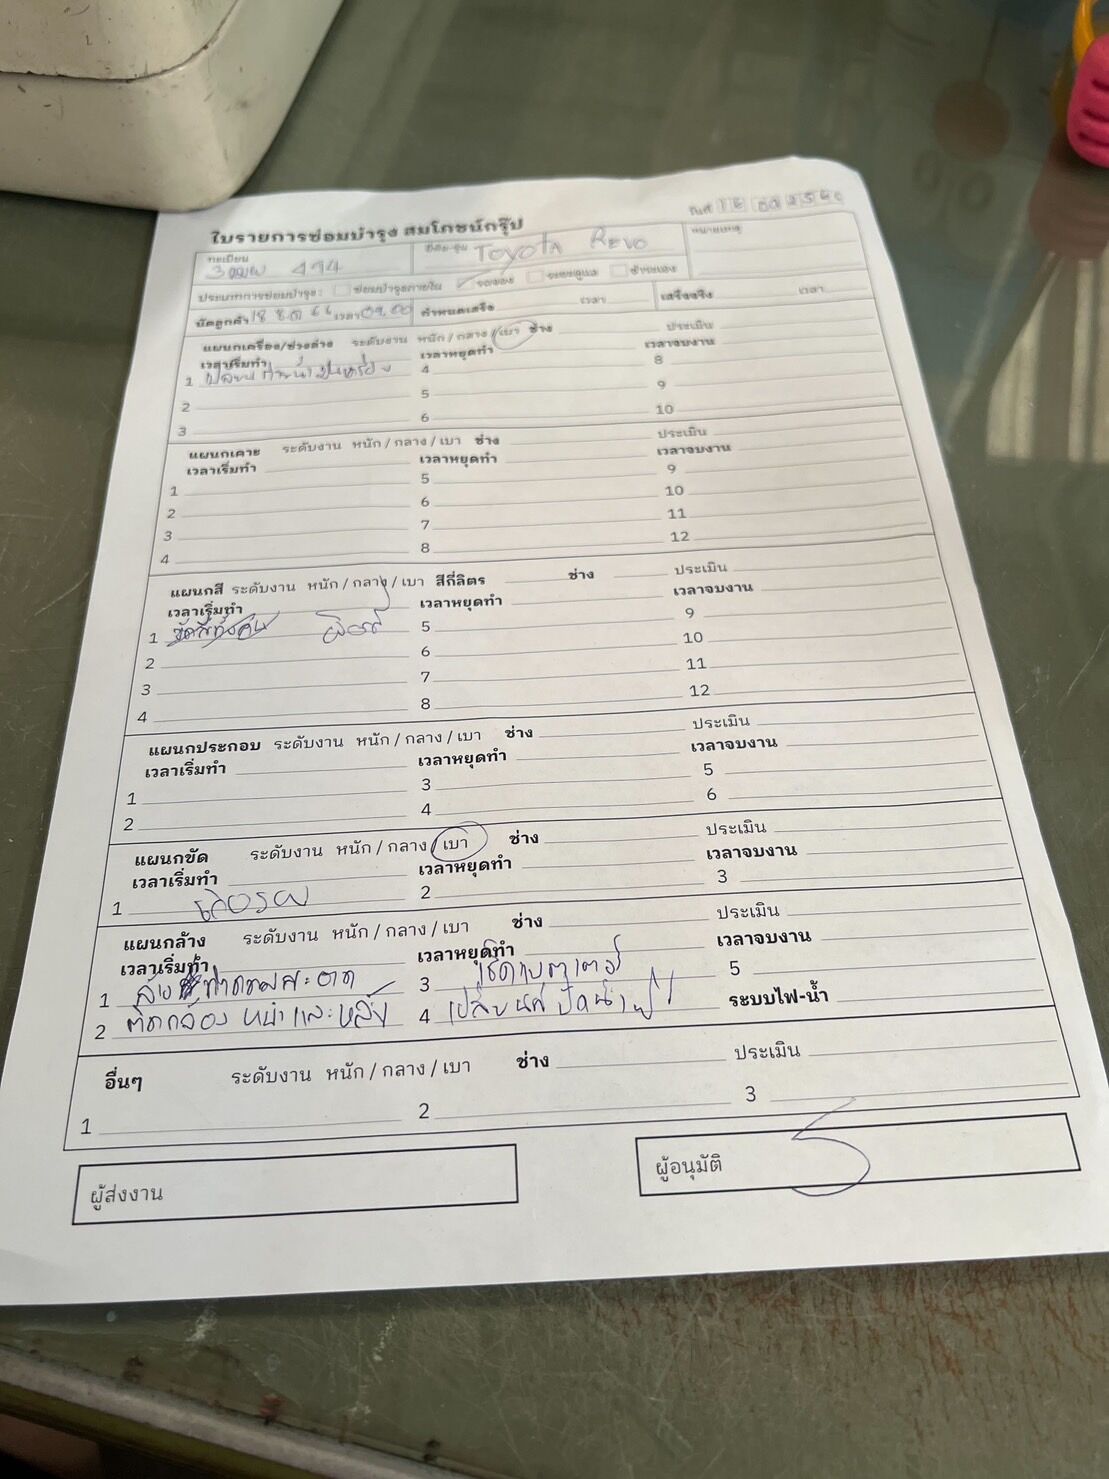 ใบรายการซ่อมบำรุง สมโภชน์กรุ๊ป วันที่
ทะเบียน ยี่ห้อ-รุ่น TOYOTA REVO หมายเหตุ
494
ประเภทการซ่อมบำรุง : ซ่อมบำรุงภายใน
นัดลูกค้า 18 เวลา 09.00 กำหนดเสร็จ เวลา เสร็จจริง เวลา
แผนกเครื่อง/ช่วงล่าง ระดับงาน หนัก / กลาง / เบา ช่าง ประเมิน
เวลาเริ่มทำ เวลาหยุดทำ เวลาจบงาน
1 เปลี่ยนถ่ายน้ำมันเครื่อง 4 8
2 5 9
3 6 10
แผนกเคาะ ระดับงาน หนัก / กลาง / เบา ช่าง ประเมิน
เวลาเริ่มทำ เวลาหยุดทำ เวลาจบงาน
1 5 9
2 6 10
3 7 11
4 8 12
แผนกสี ระดับงาน หนัก / กลาง / เบา สีกี่ลิตร ช่าง ประเมิน
เวลาเริ่มทำ เวลาหยุดทำ เวลาจบงาน
1 5 9
2 6 10
3 7 11
4 8 12
แผนกประกอบ ระดับงาน หนัก / กลาง / เบา ช่าง ประเมิน
เวลาเริ่มทำ เวลาหยุดทำ เวลาจบงาน
1 3 5
2 4 6
แผนกขัด ระดับงาน หนัก / กลาง / เบา ช่าง ประเมิน
เวลาเริ่มทำ เวลาหยุดทำ เวลาจบงาน
1 2 3
แผนกล้าง ระดับงาน หนัก / กลาง / เบา ช่าง ประเมิน
เวลาเริ่มทำ เวลาหยุดทำ เวลาจบงาน
1 ล้าง ทำความสะอาด 3 เช็ดแบตเตอรี่ 5
2 ติดกล้อง หน้าและหลัง 4 เปลี่ยนที่ปัดน้ำฝน ระบบไฟ-น้ำ
อื่นๆ ระดับงาน หนัก / กลาง / เบา ช่าง ประเมิน
1 2 3
ผู้ส่งงาน ผู้อนุมัติ